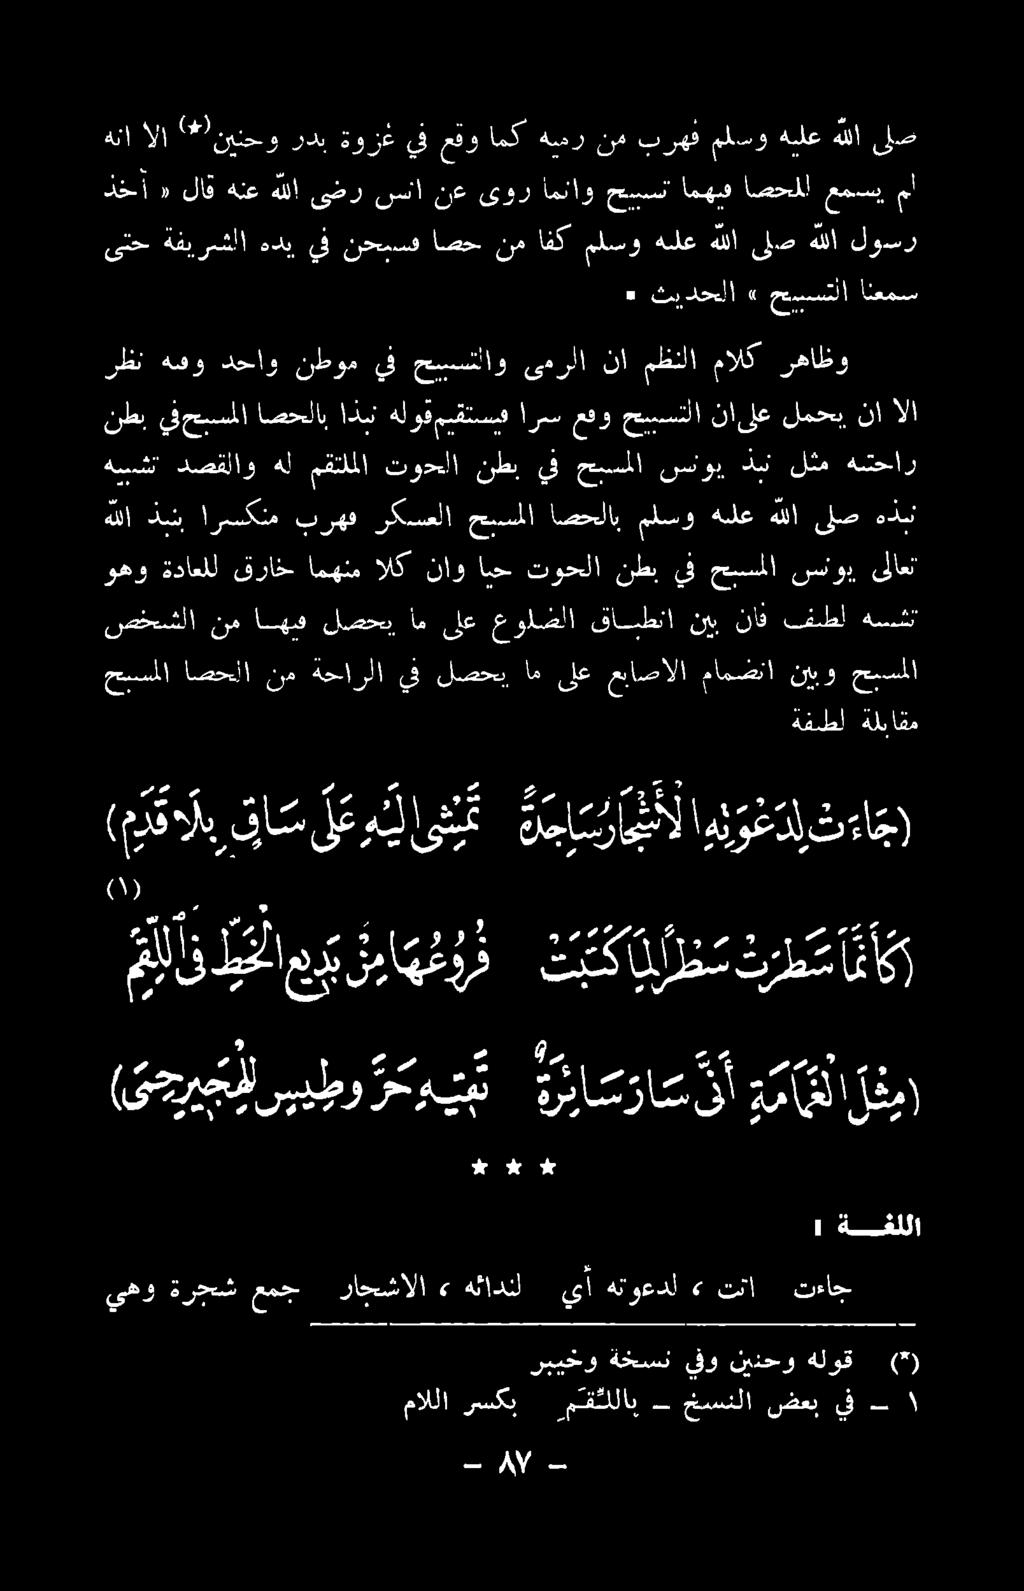 صلى الله عليه وسلم فهرب من رميه كما وقع في غزوة بدر وحنين(*) الا انه
لم يسمع للحصا فيهما تسبيح وانما روى عن انس رضى الله عنه قال « أخذ
رسول الله صلى الله عليه وسلم كفا من حصا فسبحن في يده الشريفة حتى
سمعنا التسبيح » الحديث .
وظاهر كلام النظم ان الرمى والتسبيح في موطن واحد وفيه نظر
الا ان يحمل على ان التسبيح وقع سرا فيستقيم قوله نبذا بالحصا المسبح في بطن
راحته مثل نبذ يونس المسبح في بطن الحوت الملتقم له والقصد تشبيه
نبذه صلى الله عليه وسلم بالحصا المسبح العسكر فهرب منكسرا بنبذ الله
تعالى يونس المسبح في بطن الحوت حيا وان كلا منهما خارق للعادة وهو
تشبيه لطيف فان بين انطباق الضلوع على ما يحصل فيها من الشخص
المسبح وبين انضمام الاصابع على ما يحصل في الراحة من الحصا المسبح
مقابلة لطيفة
(جَاءَتْ لِدَعْوَتِهِ الْأَشْجَارُ سَاجِدَةً تَمْشِى إِلَيْهِ عَلَى سَاقٍ بِلَا قَدَمِ)
(١)
(كَأَنَّمَا سَطَرَتْ سَطْراً لِمَا كَتَبَتْ فُرُوعُهَا مِنْ بَدِيعِ الْخَطِّ فِى اللَّقَمِ
(مِثْلَ الْغَمَامَةِ أَنَّى سَارَ سَائِرَةٌ تَقِيهِ حَرَّ وَطِيسٍ لِلْهَجِيرِ حَمِى)
★ ★ ★
اللغـــة :
جاءت اتت ، لدعوته أي لندائه ، الاشجار جمع شجرة وهي
(*) قوله وحنين وفي نسخة وخيبر
١ – في بعض النسخ – باللَّقَمِ بكسر اللام
– ٨٧ –